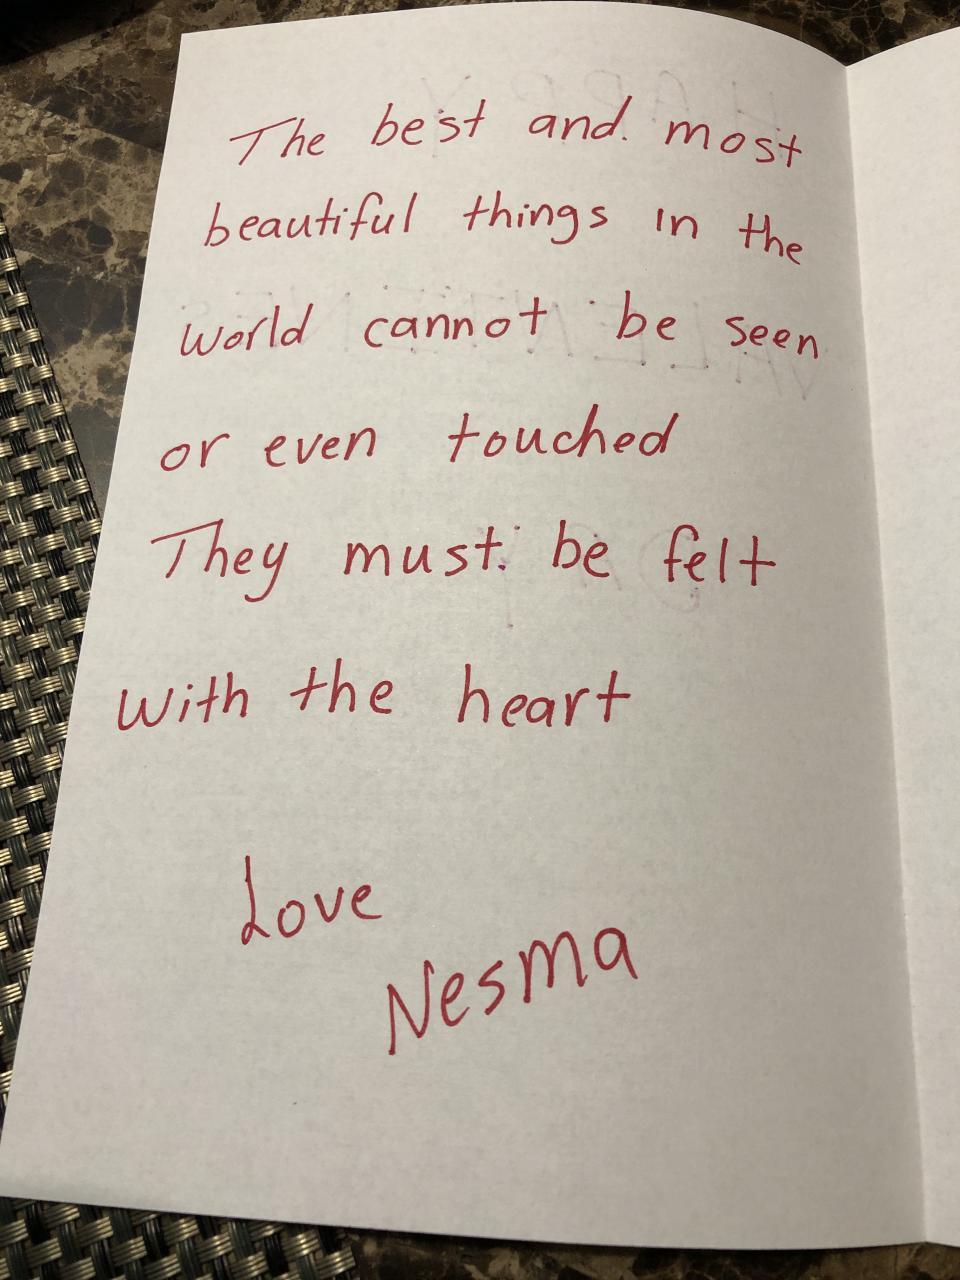 The best and most
beautiful things in the
world cannot be seen
or even touched
They must be felt
with the heart
Love
Nesma
HAPPY
VALENTINES
DAY